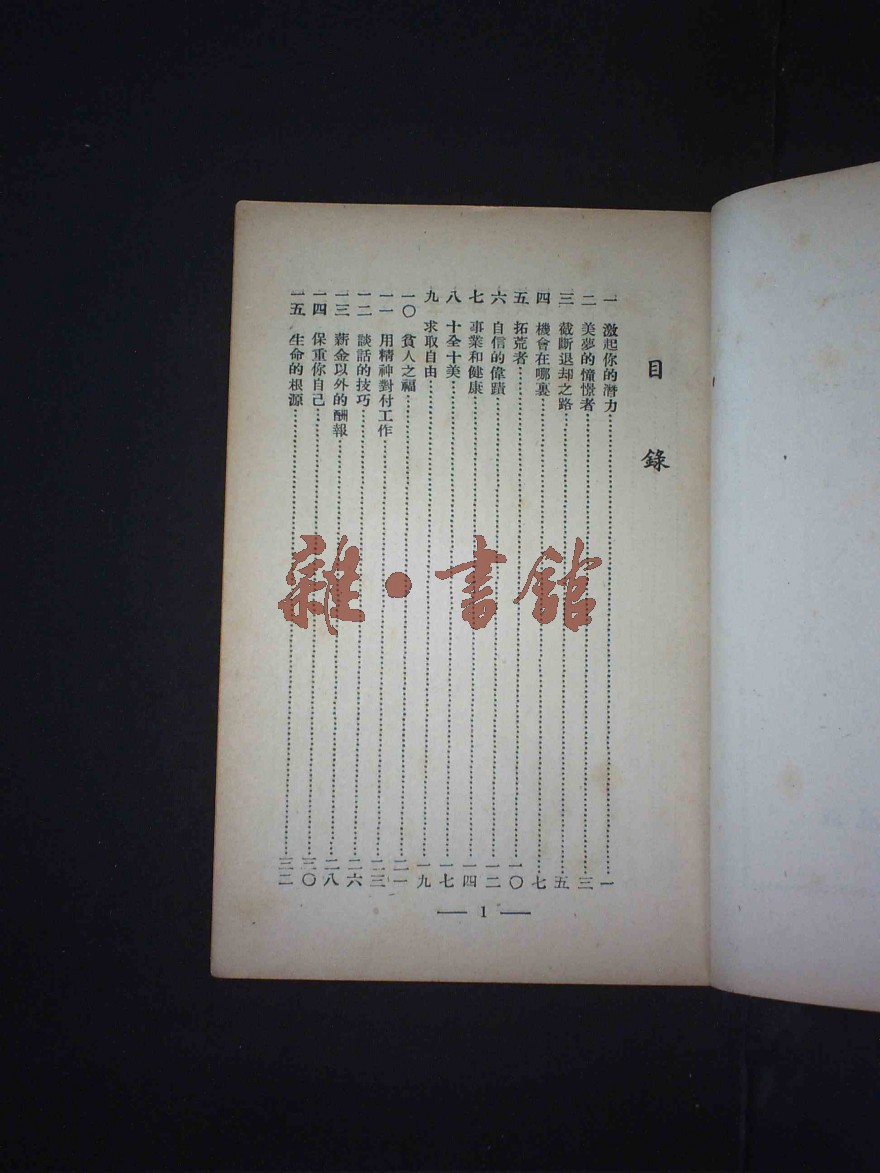 目錄
一 激起你的潛力……一
二 美夢的憧憬者……三
三 截斷退却之路……五
四 機會在哪裏……七
五 拓荒者……一〇
六 自信的偉蹟……一二
七 事業和健康……一四
八 十全十美……一七
九 求取自由……一九
一〇 貧人之福……二一
一一 用精神對付工作……二三
一二 談話的技巧……二六
一三 薪金以外的酬報……二八
一四 保重你自己……三〇
一五 生命的根源……三二
— 1 —
雜·書館